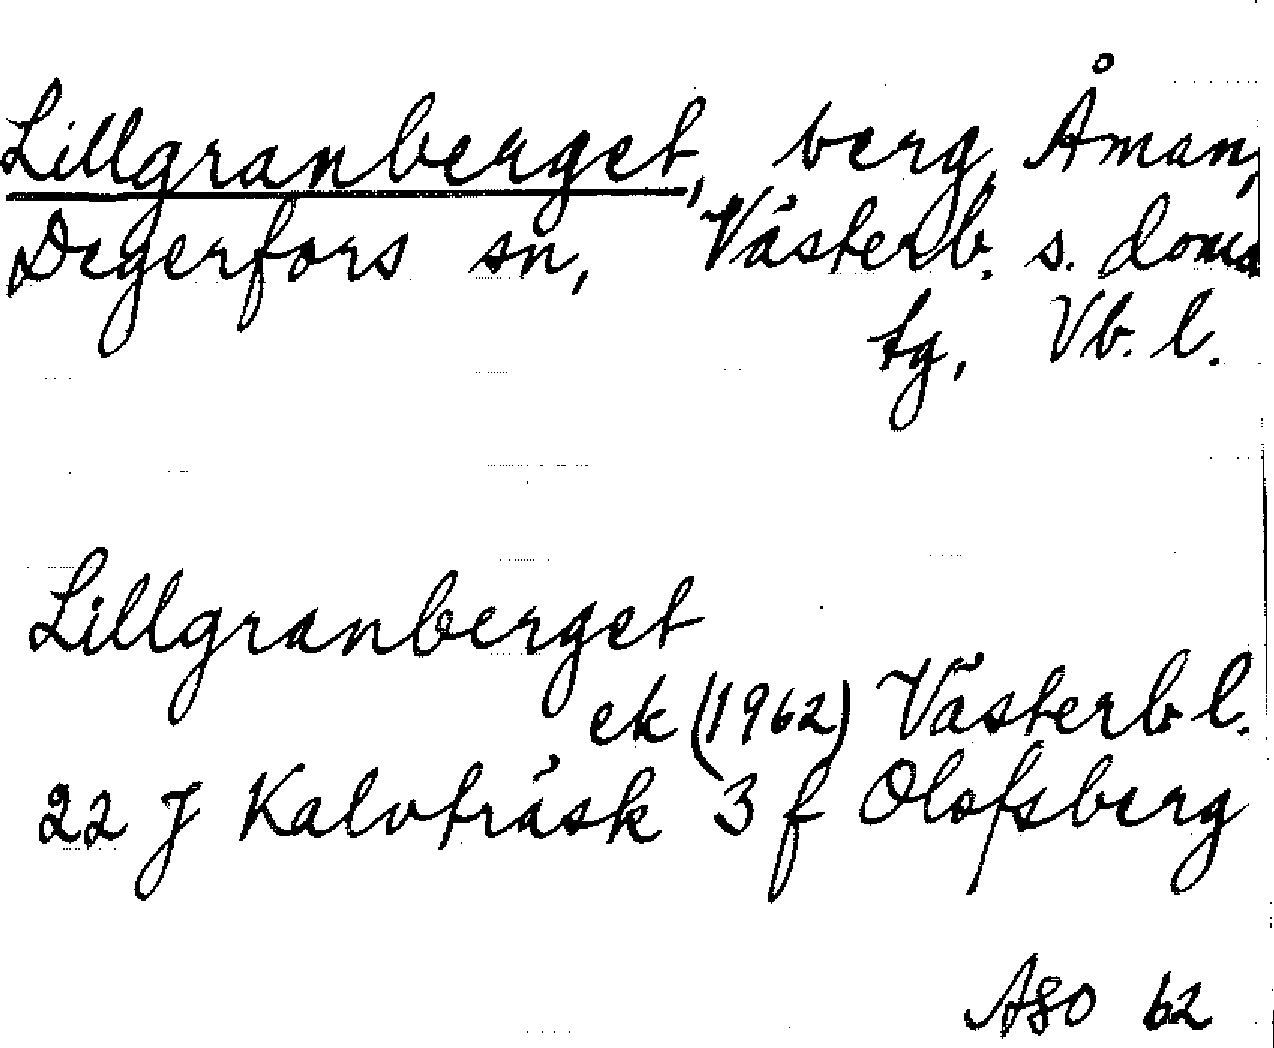 Lillgranberget, berg, Åman,
Degerfors sn, Västerb. s. doms
tg, Vb. l.
Lillgranberget
ek (1962) Västerb l.
22 J Kalvträsk 3 f Olofsberg
ASO 62